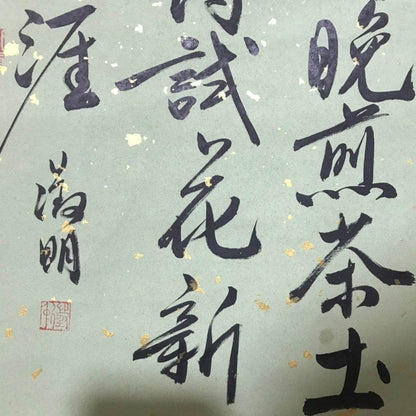 晚煎茶土
試花新
涯
徵明